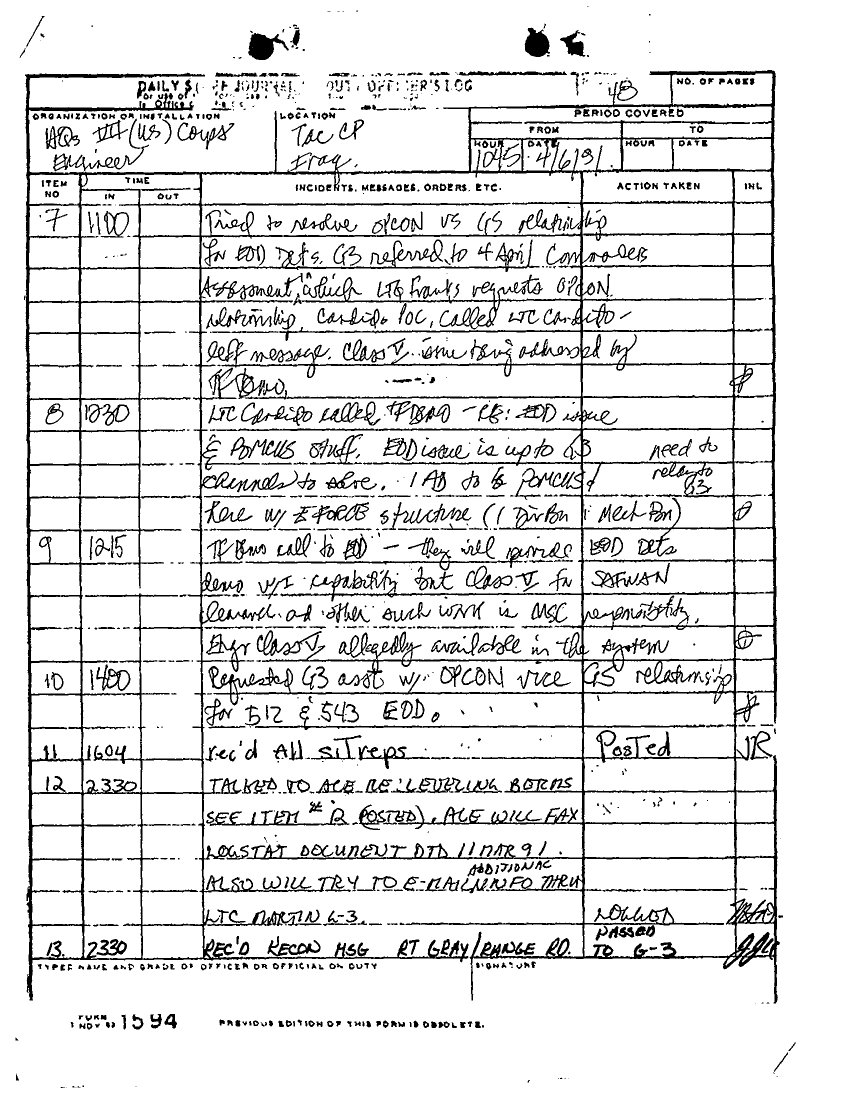 DAILY JOURNAL OFFICER'S LOG
48
NO. OF PAGES
ORGANIZATION OR INSTALLATION
HQs VII (US) Corps
Engineer
LOCATION
Tac CP
Iraq.
PERIOD COVERED
FROM
TO
HOUR
DATE
HOUR
DATE
1045 4/6/91
ITEM NO
TIME
IN
OUT
INCIDENTS, MESSAGES, ORDERS, ETC.
ACTION TAKEN
INL
7 1100 Tried to resolve OPCON vs GS relationship
for EOD Dets. G3 referred to 4 April Commanders
Assessment, in which LTG Franks requests OPCON
relationship, Candido POC, called LTC Candido -
left message. Class V issue being addressed by
TF Demo.
8 1230 LTC Candido called TF Demo - RE: EOD issue
& POMCUS stuff. EOD issue is up to G3 need to
channels to solve. 1 AD to POMCUS relay to G3
here w/ E-FORCE structure (1 Div Bn 1 Mech Bn)
9 1215 TF Demo call to EOD - they will provide EOD Dets
demo w/I capability but Class V for SAFWAN
clearance ad other such work is MSC responsibility.
Engr Class V allegedly available in the system
10 1400 Requested G3 asst w/ OPCON vice GS relationship
for 512 & 543 EOD.
11 1604 rec'd All siTreps Posted JR
12 2330 TALKED TO ACE RE: LEVELING BERMS
SEE ITEM #12 (POSTED). ACE WILL FAX
LOGSTAT DOCUMENT DTD 11 MAR 91.
ALSO WILL TRY TO E-MAIL ADDITIONAL INFO THRU
LTC MARTIN G-3. LOGGED
13. 2330 REC'D RECON MSG RT GRAY/RANGE RD. PASSED TO G-3
TYPED NAME AND GRADE OF OFFICER OR OFFICIAL ON DUTY
SIGNATURE
FORM 1 NOV 62 1594
PREVIOUS EDITION OF THIS FORM IS OBSOLETE.